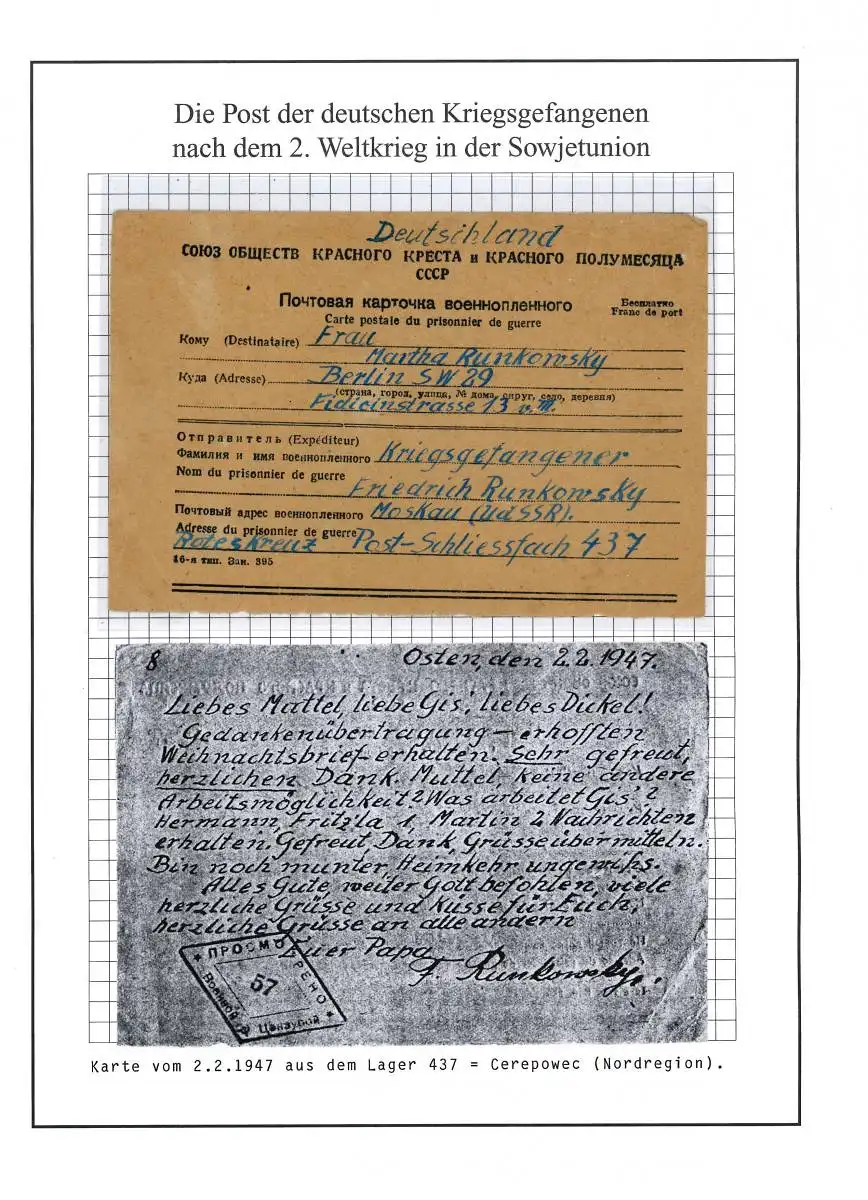 Die Post der deutschen Kriegsgefangenen
nach dem 2. Weltkrieg in der Sowjetunion
Deutschland
СОЮЗ ОБЩЕСТВ КРАСНОГО КРЕСТА и КРАСНОГО ПОЛУМЕСЯЦА
СССР
Почтовая карточка военнопленного
Бесплатно
Carte postale du prisonnier de guerre
Franc de port
Кому (Destinataire) Frau
Martha Runkowsky
Куда (Adresse) Berlin SW 29
(страна, город, улица, № дома, округ, село, деревня)
Fidicinstrasse 13
Отправитель (Expéditeur)
Фамилия и имя военнопленного Kriegsgefangener
Nom du prisonnier de guerre
Friedrich Runkowsky
Почтовый адрес военнопленного Moskau (UdSSR).
Adresse du prisonnier de guerre Post-Schliessfach 437
Rotes Kreuz
16-я тип. Зак. 395
8
Osten, den 2.2.1947.
Liebes Muttel, liebe Gis, liebes Dickel!
Gedankenübertragung – erhofften
Weihnachtsbrief erhalten. Sehr gefreut,
herzlichen Dank. Muttel, keine andere
Arbeitsmöglichkeit? Was arbeitet Gis?
Hermann, Fritz'la 1, Martin 2 Nachrichten
erhalten. Gefreut, Dank, Grüsse übermitteln.
Bin noch munter, Heimkehr ungewiss.
Alles Gute, weiter Gott befohlen, viele
herzliche Grüsse und Küsse für Euch,
herzliche Grüsse an alle andern
Euer Papa
F. Runkowsky.
ПРОСМОТРЕНО
57
Военной Цензурой
Karte vom 2.2.1947 aus dem Lager 437 = Cerepowec (Nordregion).